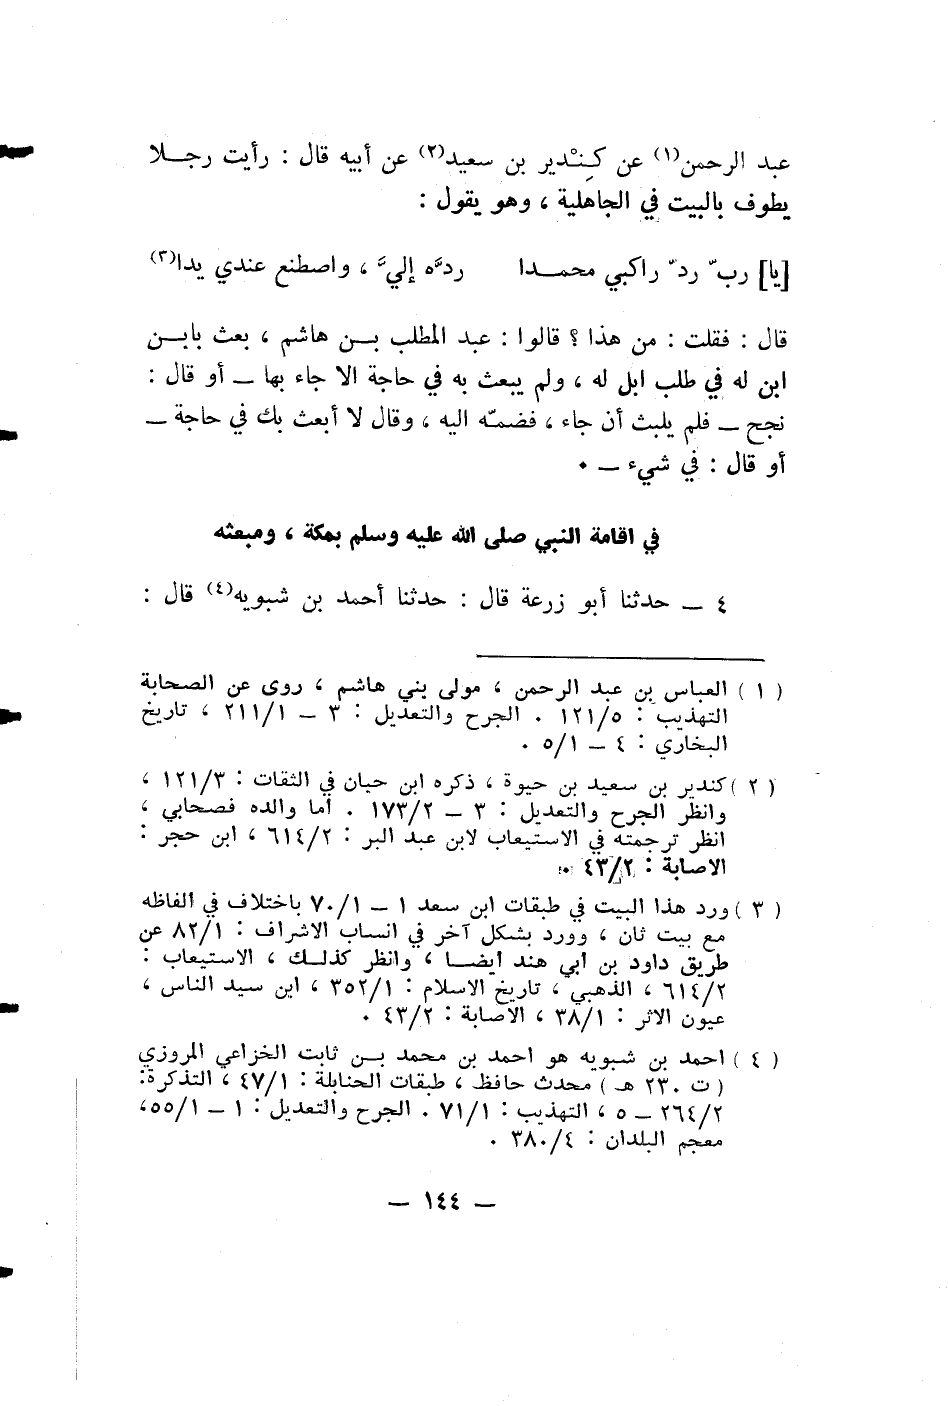 عبد الرحمن(١) عن كِنْدير بن سعيد(٢) عن أبيه قال : رأيت رجـلا
يطوف بالبيت في الجاهلية ، وهو يقول :
[يا] ربّ ردّ راكبي محمـدا ردَّه إليَّ ، واصطنع عندي يدا(٣)
قال : فقلت : من هذا ؟ قالوا : عبد المطلب بـن هاشم ، بعث بابـن
ابن له في طلب ابل له ، ولم يبعث به في حاجة الا جاء بها ــ أو قال :
نجح ــ فلم يلبث أن جاء ، فضمّه اليه ، وقال لا أبعث بك في حاجة ــ
أو قال : في شيء ــ .
في اقامة النبي صلى الله عليه وسلم بمكة ، ومبعثه
٤ ــ حدثنا أبو زرعة قال : حدثنا أحمد بن شبويه(٤) قال :
( ١ ) العباس بن عبد الرحمن ، مولى بني هاشم ، روى عن الصحابة
التهذيب : ١٢١/٥ . الجرح والتعديل : ٣ ــ ٢١١/١ ، تاريخ
البخاري : ٤ ــ ٥/١ .
( ٢ ) كندير بن سعيد بن حيوة ، ذكره ابن حبان في الثقات : ١٢١/٣ ،
وانظر الجرح والتعديل : ٣ ــ ١٧٣/٢ . أما والده فصحابي ،
انظر ترجمته في الاستيعاب لابن عبد البر : ٦١٤/٢ ، ابن حجر :
الاصابة : ٤٣/٢ .
( ٣ ) ورد هذا البيت في طبقات ابن سعد ١ ــ ٧٠/١ باختلاف في ألفاظه
مع بيت ثان ، وورد بشكل آخر في انساب الاشراف : ٨٢/١ عن
طريق داود بن أبي هند أيضـا ، وانظر كذلـك ، الاستيعاب :
٦١٤/٢ ، الذهبي ، تاريخ الاسلام : ٣٥٢/١ ، ابن سيد الناس ،
عيون الاثر : ٣٨/١ ، الاصابة : ٤٣/٢ .
( ٤ ) احمد بن شبويه هو احمد بن محمد بـن ثابت الخزاعي المروزي
( ت ٢٣٠ هـ ) محدث حافظ ، طبقات الحنابلة : ٤٧/١ ، التذكرة:
٢٦٤/٢ ــ ٥ ، التهذيب : ٧١/١ . الجرح والتعديل : ١ ــ ٥٥/١،
معجم البلدان : ٣٨٠/٤ .
ــ ١٤٤ ــ